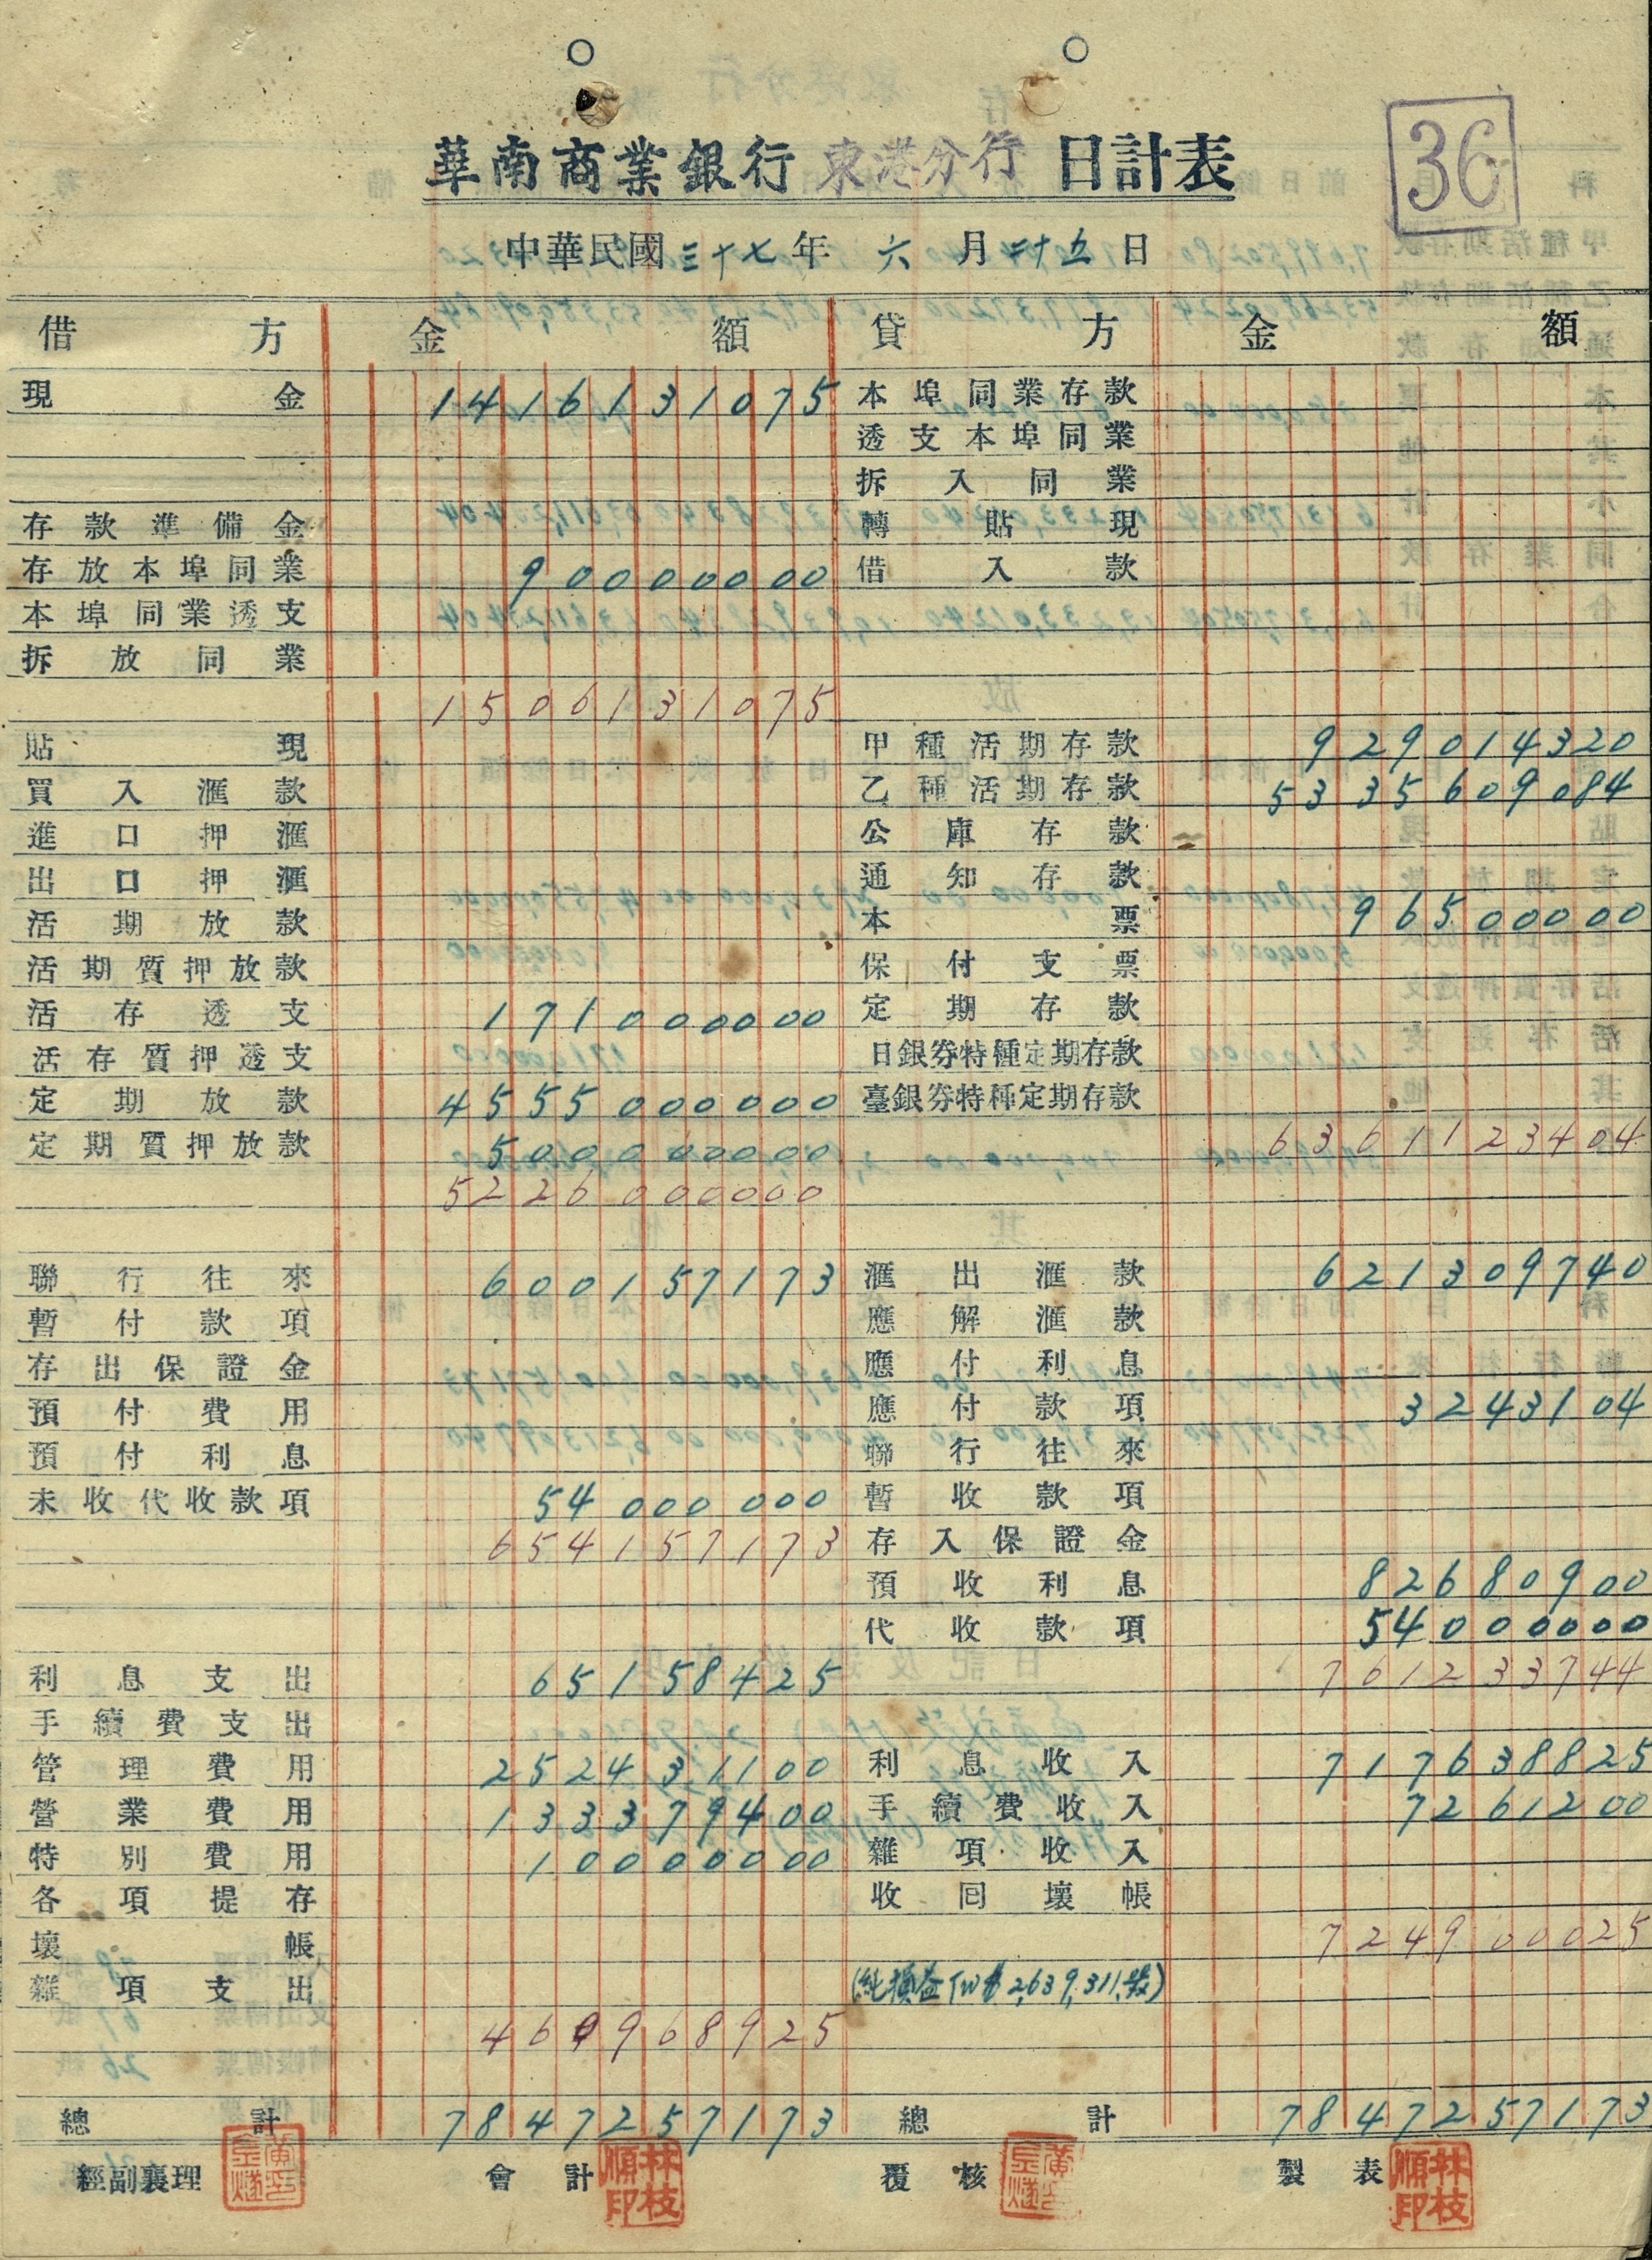 36
華南商業銀行 東港分行 日計表
中華民國三十七年 六月二十五日
借方 金額 貸方 金額
現金 1416131075 本埠同業存款
透支本埠同業
拆入同業
存款準備金 轉貼現
存放本埠同業 90000000 借入款
本埠同業透支
拆放同業
1506131075
貼現 甲種活期存款 929014320
買入滙款 乙種活期存款 5335609084
進口押滙 公庫存款
出口押滙 通知存款
活期放款 本票 96500000
活期質押放款 保付支票
活存透支 171000000 定期存款
活存質押透支 日銀券特種定期存款
定期放款 4555000000 臺銀券特種定期存款
定期質押放款 500000000 6361123404
5226000000
聯行往來 600157173 滙出滙款 621309740
暫付款項 應解滙款
存出保證金 應付利息
預付費用 應付款項 3243104
預付利息 聯行往來
未收代收款項 54000000 暫收款項
654157173 存入保證金
預收利息 82680900
代收款項 54000000
利息支出 65158425 761233744
手續費支出
管理費用 252431100 利息收入 717638825
營業費用 133379400 手續費收入 7261200
特別費用 10000000 雜項收入
各項提存 收回壞帳
壞帳 724900025
雜項支出 (純損益TW$2,639,311.)
460968925
總計 7847257173 總計 7847257173
經副襄理 會計 林枝順印 覆核 製表 林枝順印